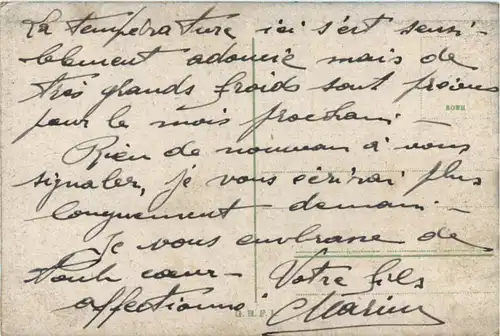 La température ici s'est sensi-
blement adoucie mais de
très grands froids sont prévus
pour le mois prochain -
Rien de nouveau à vous
signaler, je vous écrirai plus
longuement demain -
Je vous embrasse de
tout coeur -
Votre fils
affectionné